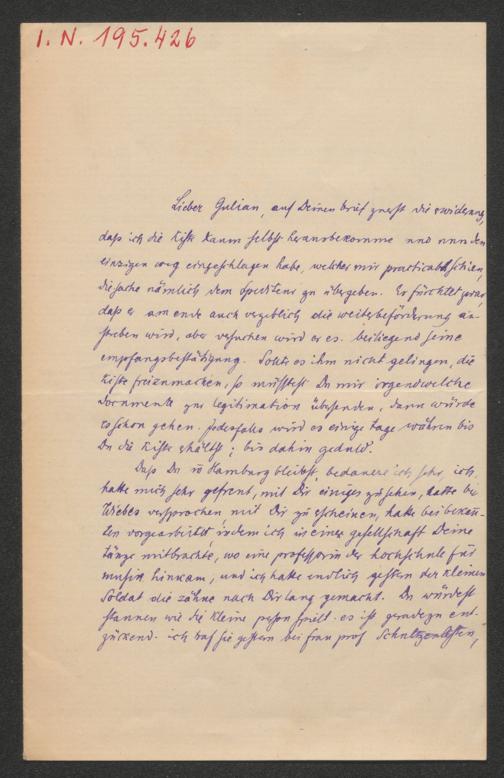 I. N. 195.426
Lieber Julian, auf Deinen brief zuerst die erwiderung,
daß ich die Kiste kaum selbst herausbekomme und nun den
einzigen weg eingeschlagen habe, welcher mir practicabel schien,
die sache nämlich dem Spediteur zu übergeben. Er fürchtet zwar,
daß er am ende auch vergeblich die weiterbeförderung an-
streben wird, aber versuchen wird er es. beiliegend seine
empfangsbestätigung. Sollte es ihm nicht gelingen, die
Kiste freizumachen, so müsstest Du mir irgendwelche
Documente zur legitimation übersenden, dann würde
es schon gehen. jedesfalls wird es einige tage währen bis
Du die Kiste erhältst; bis dahin geduld.
Daß Du in Hamburg bleibst, bedauere ich sehr, ich
hatte mich sehr gefreut, mit Dir einiges zu sehen, hatte bei
versprochen mit Dir zu erscheinen, hatte bei bekann-
ten vorgearbeitet, indem ich in einer gesellschaft Deine
tänze mitbrachte, wo eine professorin der hochschule für
musik hinkam, und ich hatte endlich gestern der kleinen
Soldat die zähne nach Dir lang gemacht. Du würdest
staunen wie die kleine person spielt. es ist geradezu ent-
zückend. ich traf sie gestern bei frau prof